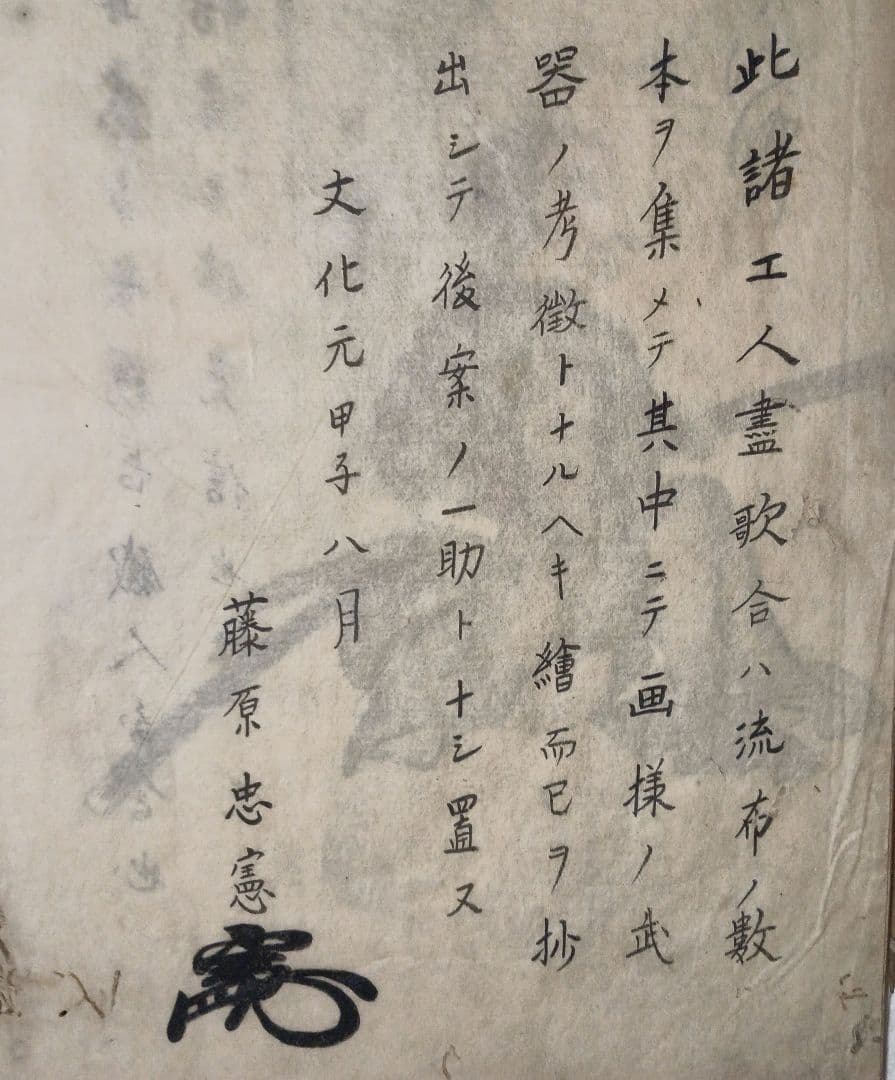 此諸工人盡歌合ハ流布ノ數
本ヲ集メテ其中ニテ画様ノ武
器ノ考徴トナルヘキ繪而已ヲ抄
出シテ後案ノ一助トナシ置ヌ
文化元甲子八月
藤原忠憲